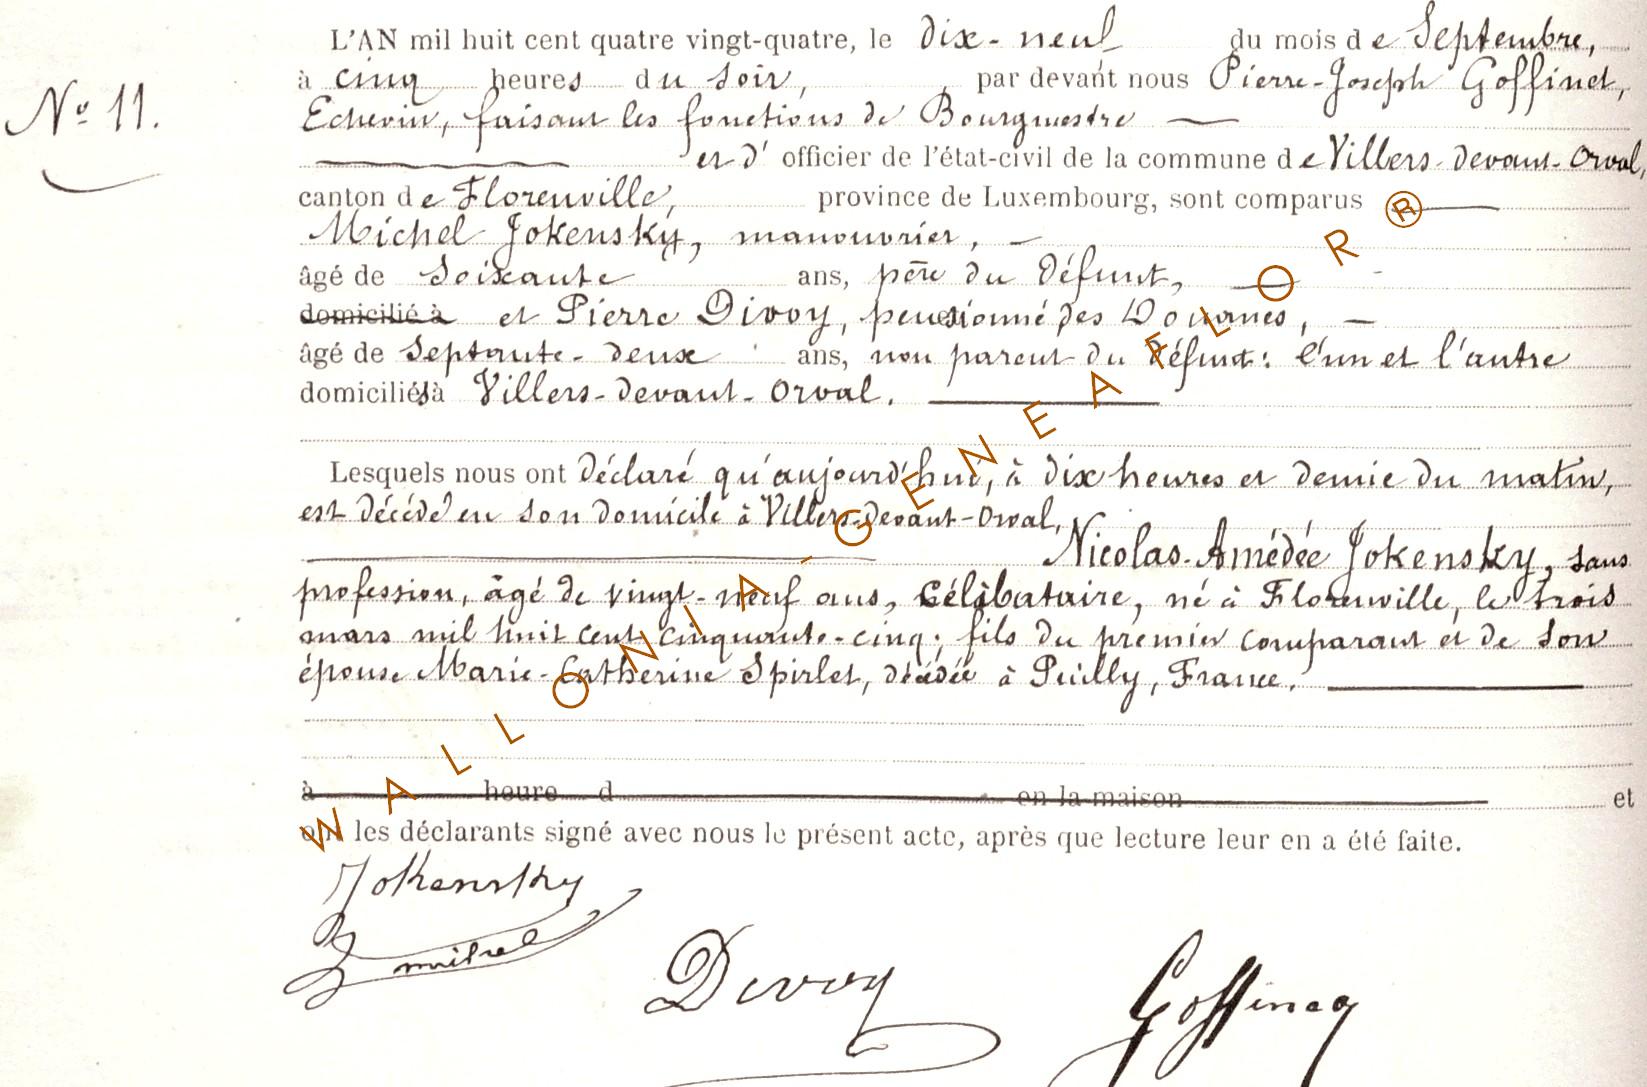 L'AN mil huit cent quatre vingt-quatre, le dix-neuf du mois de Septembre,
à cinq heures du soir, par devant nous Pierre-Joseph Goffinet,
N° 11.
Echevin, faisant les fonctions de Bourgmestre
et d' officier de l'état-civil de la commune de Villers-devant-Orval,
canton de Florenville, province de Luxembourg, sont comparus
Michel Jokensky, manouvrier,
âgé de soixante ans, père du défunt,
domicilié à et Pierre Divoy, pensionné des Douanes,
âgé de septante-deux ans, non parent du défunt: l'un et l'autre
domiciliés à Villers-devant-Orval.
Lesquels nous ont déclaré qu'aujourd'hui, à dix heures et demie du matin,
est décédé en son domicile à Villers-devant-Orval,
Nicolas-Amédée Jokensky, sans
profession, âgé de vingt-neuf ans, célibataire, né à Florenville, le trois
mars mil huit cent cinquante-cinq; fils du premier comparant et de son
épouse Marie-Catherine Spirlet, décédée à Puilly, France.
à heure d en la maison et
ont les déclarants signé avec nous le présent acte, après que lecture leur en a été faite.
Jokensky
Divoy
Goffineq
WALLONIA-GENEAFLOR®